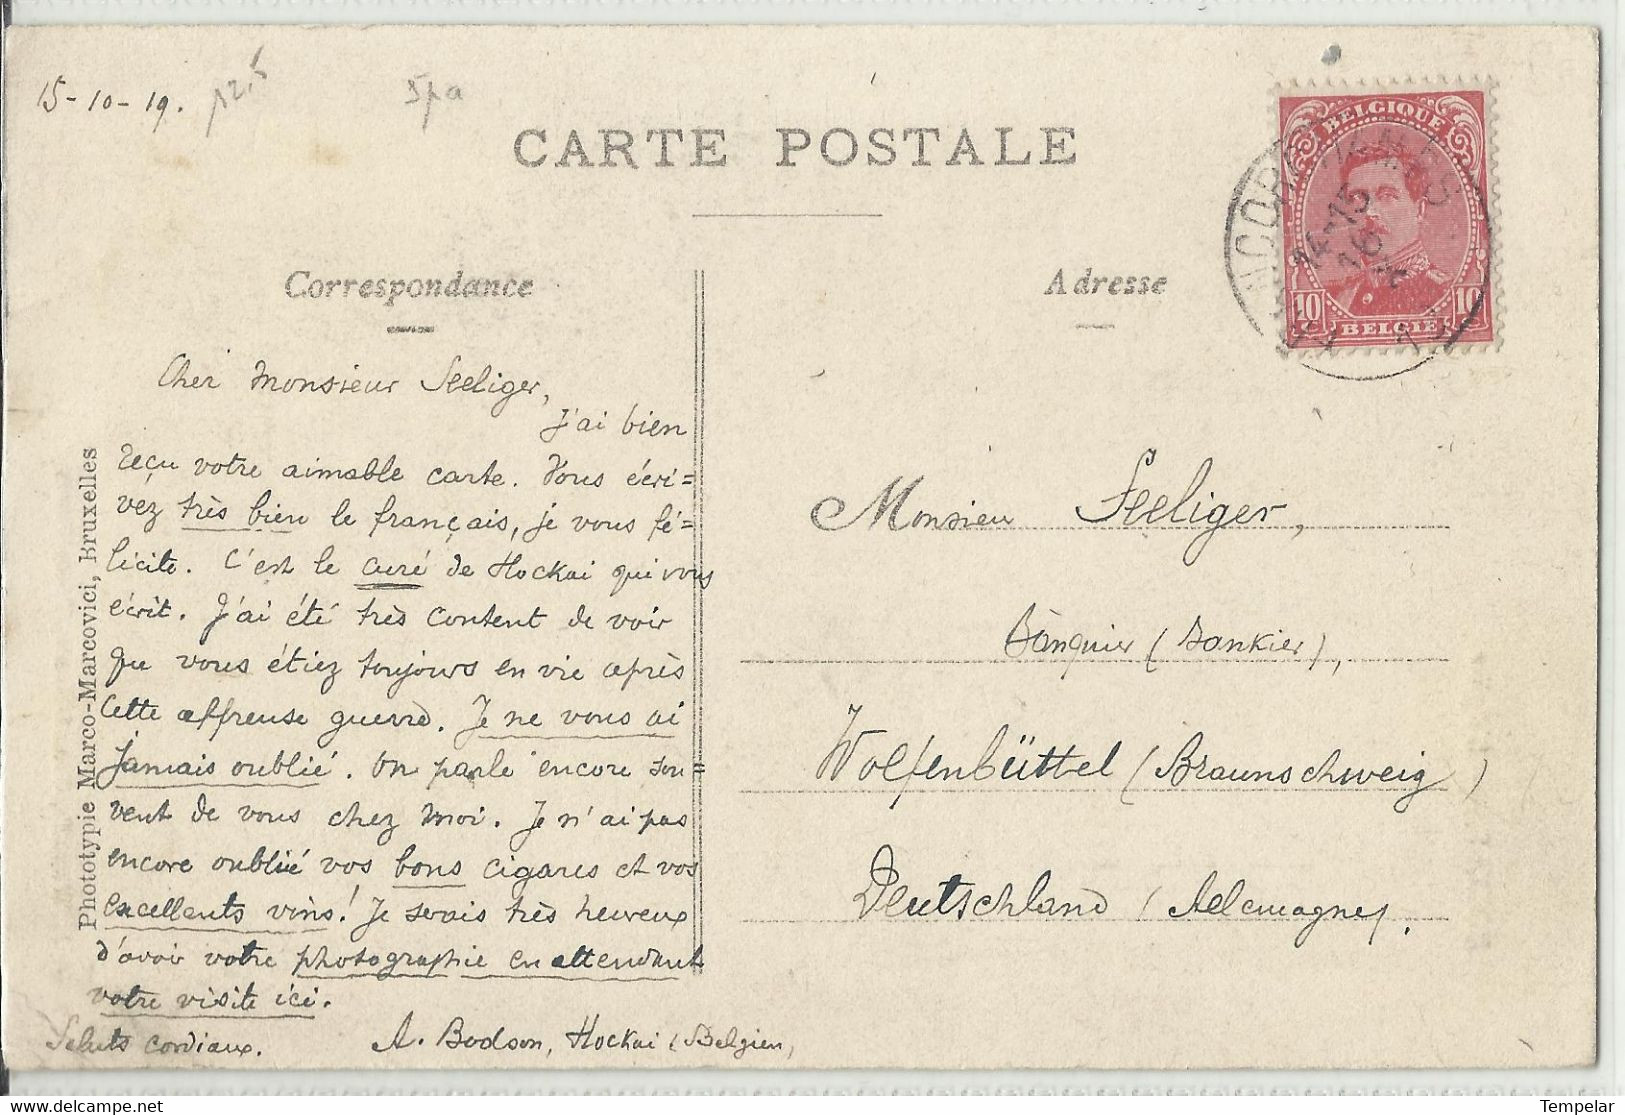 15-10-19.
p2,5
Spa
CARTE POSTALE
BELGIQUE
10 10
BELGIË
14-15
16
Correspondance
Adresse
Cher Monsieur Seeliger,
J'ai bien
reçu votre aimable carte. Vous écri=
vez très bien le français, je vous fé=
licite. C'est le curé de Hockai qui vous
écrit. J'ai été très content de voir
que vous étiez toujours en vie après
cette affreuse guerre. Je ne vous ai
jamais oublié. On parle encore sou=
vent de vous chez moi. Je n'ai pas
encore oublié vos bons cigares et vos
excellents vins! Je serais très heureux
d'avoir votre photographie en attendant
votre visite ici.
Saluts cordiaux. A. Bodson, Hockai (Belgien,
Phototypie Marco-Marcovici, Bruxelles
Monsieur Seeliger,
Banquier (Bankier),
Wolfenbüttel (Braunschweig)
Deutschland (Allemagne).
Tempelar